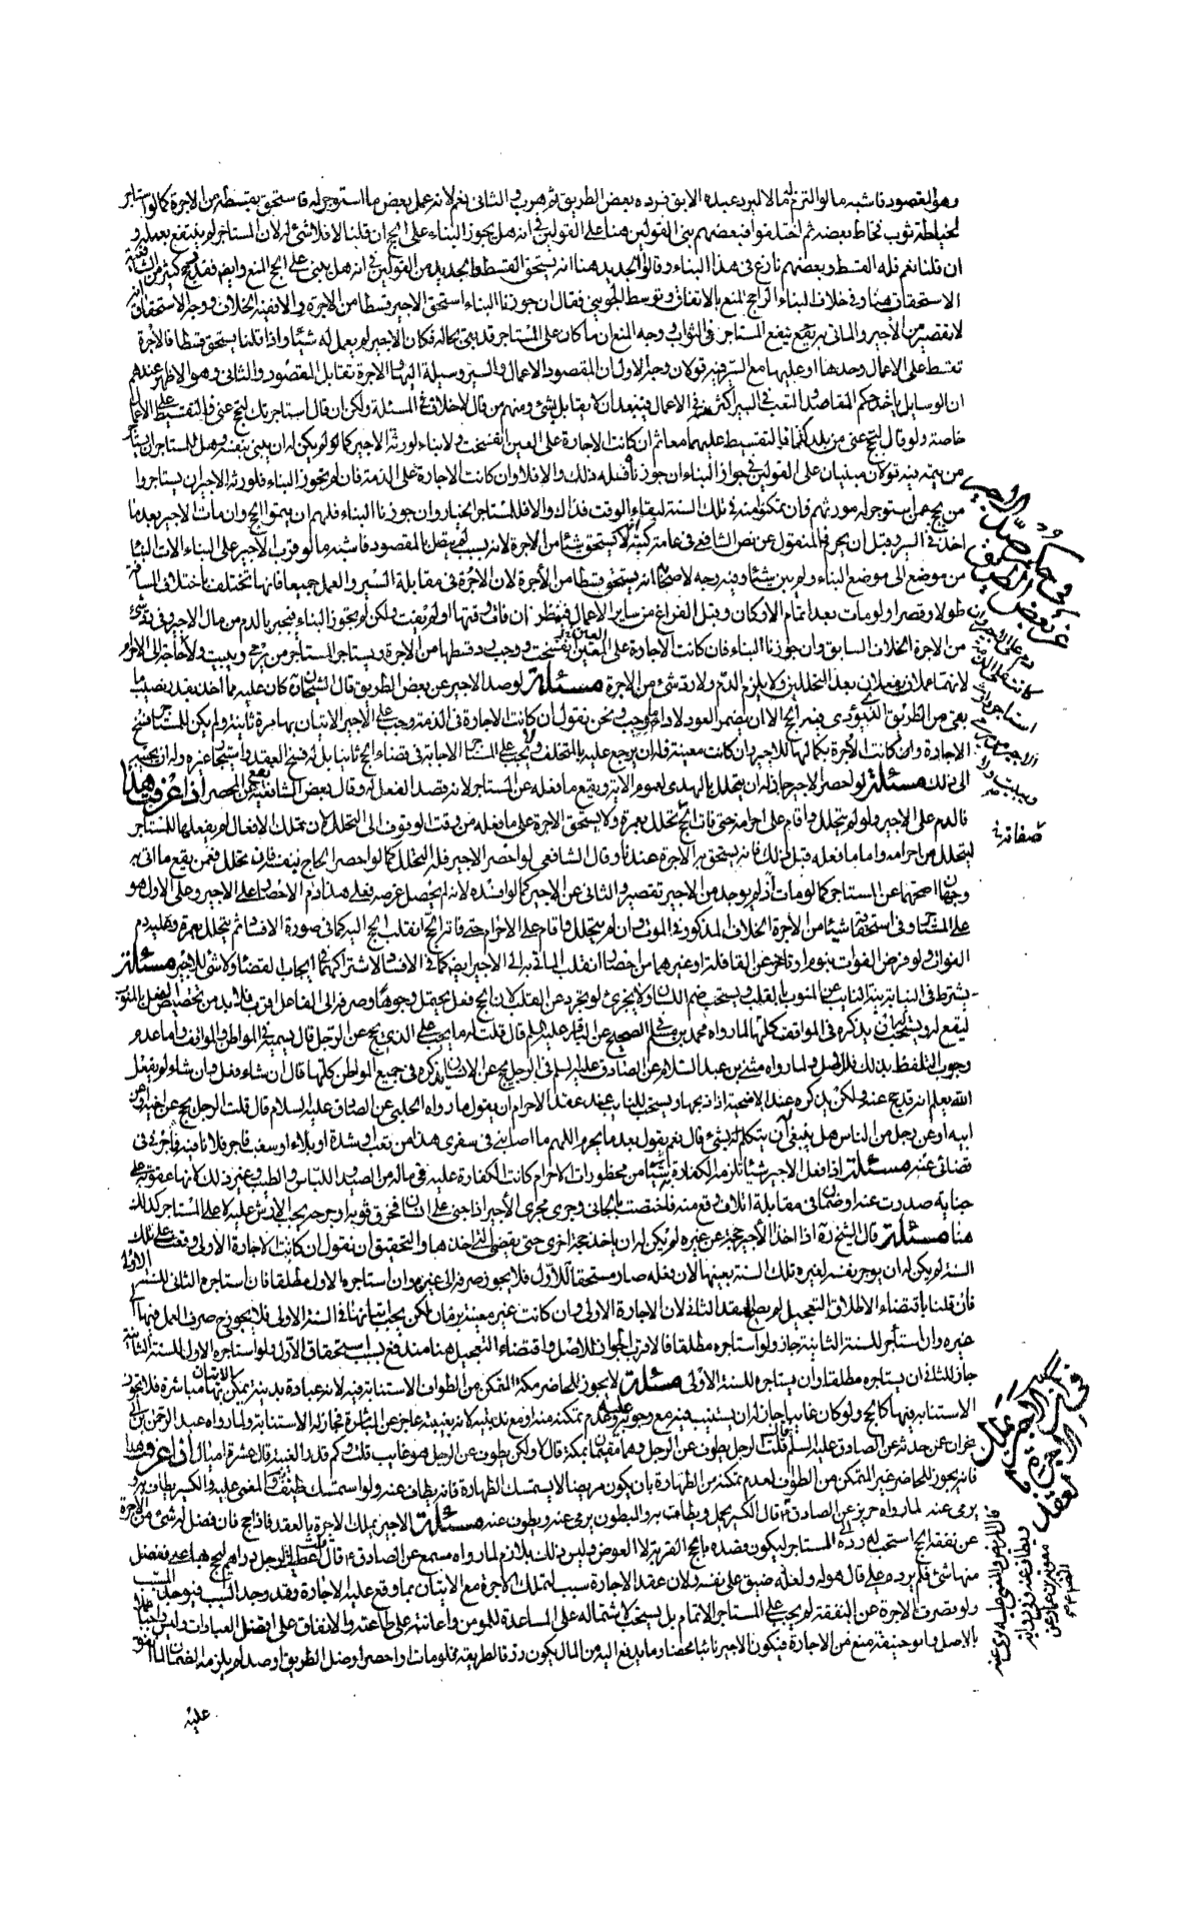 وهو المقصود فاشبه ما لو التزم له مالا ليرد عبده الابق فرده بعض الطريق ثم هرب والثاني نعم لانه عمل بعض ما استوجر له فاستحق بقسطه من الاجرة كما لو استاجر
لخياطة ثوب فخاط بعضه ثم اختلفوا فبعضهم بنى القولين هنا على القولين في انه هل يجوز البناء على الحج ان قلنا لا فلا شئ له لان المستاجر لم ينتفع بعمله و
ان قلنا نعم فله القسط وبعضهم نازع في هذا البناء وقالوا الجديد هنا انه يستحق القسط والجديد من القولين في انه هل يبنى على الحج المنع وايضا فقد رجح كثير من الشافعية
الاستحقاق هنا وفي خلاف البناء الراجح المنع بالاتفاق وتوسط الجويني فقال ان جوزنا البناء استحق الاجير قسطا من الاجرة والا ففيه الخلاف ووجه الاستحقاق انه
لا تقصير من الاجير والماتي به نفع ينفع المستاجر في الثواب ووجه المنع ان ما كان على المستاجر قد بقى بحاله فكان الاجير لم يعمل له شيئا واذا قلنا يستحق قسطا فالاجرة
تقسط على الاعمال وحدها او عليها مع السير فيه قولان وجه الاول ان المقصود الاعمال والسير وسيلة اليها والاجرة تقابل المقصود والثاني وهو الاظهر عندهم
ان الوسايل ياخذ حكم المقاصد والتعب في السير اكثر منه في الاعمال فيبعد ان لا يقابل بشئ ومنهم من قال لا خلاف في المسئلة ولكن ان قال استاجرتك لتحج عني فالتقسيط على الاعمال
خاصة ولو قال لتحج عني من بلد كذا فالتقسيط عليهما معا ثم ان كانت الاجارة على العين انفسخت ولا بناء لورثة الاجير كما لو لم يكن له ان يبنى بنفسه وهل للمستاجر ان يستاجر
من يتمه فيه قولان مبنيان على القولين في جواز البناء ان جوزناه فله ذلك والا فلا وان كانت الاجارة على الذمة فان لم يجوز البناء فلورثة الاجير ان يستاجروا
من يحج عمن استوجر له مورثهم فان تمكنوا منه في تلك السنة لبقاء الوقت فذاك والا فللمستاجر الخيار وان جوزنا البناء فلهم ان يتموا الحج وان مات الاجير بعد ما
اخذ في السير وقبل ان يحرم فالمنقول عن نص الشافعي في عامة كتبه انه لا يستحق شيئا من الاجرة لانه بسبب لم يتصل بالمقصود فاشبه ما لو قرب الاجير على البناء الات البناء
من موضع الى موضع البناء ولم يبن شيئا وفيه وجه لاصحابه انه يستحق قسطا من الاجرة لان الاجرة في مقابلة السير والعمل جميعا فانها تختلف باختلاف المسافة
طولا وقصرا ولو مات بعد اتمام الاركان وقبل الفراغ من ساير الاعمال فينظر ان فات وقتها او لم يفت ولكن لم يجوز البناء فيجبر بالدم من مال الاجير وفي رد شئ
من الاجرة الخلاف السابق وان جوزنا البناء فان كانت الاجارة على العين انفسخت ووجب رد قسطها من الاجرة ويستاجر المستاجر من يرمي ويبيت ولا حاجة الى الاحرام
لانهما عملان يفعلان بعد التحللين ولا يلزم الدم ولا رد شئ من الاجرة مسئلة لو صد الاجير عن بعض الطريق قال الشيخان كان عليه مما اخذ بقدر نصيب ما
بقى من الطريق الذي يؤدى فيه الحج الا ان يضمن العود لاداء ما وجب ونحن نقول ان كانت الاجارة في الذمة وجب على الاجير الاتيان بها مرة ثانية ولم يكن للمستاجر فسخ
الاجارة وكانت الاجرة بكمالها للاجير وان كانت معينة فله ان يرجع عليه بالمتخلف ولا يجب على المستاجر الاجابة في قضاء الحج ثانيا بل له فسخ العقد واستيجار غيره وله ان يجيبه
الى ذلك مسئلة لو احصر الاجير جاز له ان يتحلل بالهدي لعموم الاية ويقع ما فعله عن المستاجر لانه قصد الفعل له وقال بعض الشافعية يقع عن المحصر اذا عرفت هذا
فالدم على الاجير ولو لم يتحلل واقام على احرامه حتى فات الحج تحلل بعمرة ولا يستحق الاجرة على ما فعله من وقت الوقوف الى التحلل لان تلك الافعال لم يفعلها للمستاجر
ليتحلل من احرامه واما ما فعله قبل ذلك فانه يستحق به الاجرة عندنا وقال الشافعي لو احصر الاجير فله التحلل كما لو احصر الحاج لنفسه فان تحلل فعمن يقع ما اتى به
وجهان اصحهما عن المستاجر كما لو مات اذ لم يوجد من الاجير تقصير والثاني عن الاجير كما لو افسده لانه لم يحصل غرضه فعلى هذا دم الاحصار على الاجير وعلى الاول هو
على المستاجر وفي استحقاقه شيئا من الاجرة الخلاف المذكور في الموت وان لم يتحلل واقام على الاحرام حتى فاته الحج انقلب الحج اليه كما في صورة الافساد ثم يتحلل بعمرة وعليه دم
الفوات ولو فرض الفوات بنوم او تاخر عن القافلة او غيرهما من غير احصار انقلب الماتي به الى الاجير ايضا كما في الافساد لاشتراكهما في ايجاب القضاء ولا شئ للاجير مسئلة
يشترط في النيابة نية النائب عن المنوب بالقلب ويستحب ضم اللسان ولا يجزي لو تجرد عن القلب لان الحج فعل يحتمل وجوها وصرفه الى الفاعل اقرب فلابد من تخصيص الفعل بالمنوب
ليقع له ويستحب ان يذكره في المواقف كلها لما رواه محمد بن مسلم في الصحيح عن الباقر عليه السلم قال قلت له ما يجب على الذي يحج عن الرجل قال يسميه في المواطن والمواقف واما عدم
وجوب التلفظ بذلك فللاصل ولما رواه مثنى بن عبد السلام عن الصادق عليه السلم في الرجل يحج عن الانسان يذكره في جميع المواطن كلها قال ان شاء فعل وان شاء لم يفعل
الله يعلم انه قد حج عنه ولكن يذكره عند الاضحية اذا ذبحها ويستحب للنايب عند عقد الاحرام ان يقول ما رواه الحلبي عن الصادق عليه السلام قال قلت الرجل يحج عن اخيه او عن
ابيه او عن رجل من الناس هل ينبغي له ان يتكلم بشئ قال نعم يقول بعد ما يحرم اللهم ما اصابني في سفري هذا من تعب او شدة او بلاء او سغب فاجر فلانا فيه واجرني في
قضائي عنه مسئلة اذا فعل الاجير شيئا تلزمه الكفارة به من محظورات الاحرام كانت الكفارة عليه في ماله من الصيد او اللباس او الطيب وغير ذلك لانها عقوبة على
جناية صدرت عنه او ضمان في مقابلة اتلاف وقع منه فاختصت بالجاني وجرى مجرى الاجير اذا جنى على انسان فخرق ثوبه او جرحه يجب الارش عليه لا على المستاجر كذلك
هنا مسئلة قال الشيخ ره اذا اخذ الاجير حجة عن غيره لم يكن له ان ياخذ حجة اخرى حتى يقضي التي اخذها والتحقيق ان نقول ان كانت الاجارة الاولى وقعت على تلك
السنة لم يكن له ان يوجر نفسه لغيره تلك السنة بعينها لان فعله صار مستحقا للاول فلا يجوز صرفه الى غيره وان استاجره الاول مطلقا فان استاجره الثاني للسنة الاولى
فان قلنا باقتضاء الاطلاق التعجيل لم يصح العقد الثاني لان الاجارة الاولى وان كانت غير معينة بزمان لكن يجب اتيانها في السنة الاولى فلا يجوز ح صرف العمل فيها الى
غيره وان استاجر للسنة الثانية جاز ولو استاجره مطلقا فالاقرب الجواز للاصل واقتضاء التعجيل هنا مندفع بسبب استحقاق الاول ولو استاجره الاول للسنة الثانية
جاز للثاني ان يستاجره مطلقا وان يستاجره للسنة الاولى مسئلة لا يجوز للحاضر مكة المتمكن من الطواف الاستنابة فيه لانه عبادة بدنية يمكن الاتيان بها مباشرة فلا يجوز
الاستنابة فيها كالحج ولو كان غايبا جاز له ان يستنيب فيه مع وجوبه عليه وعدم تمكنه منه او مع ندبيته لانه بغيبته عاجز عن المباشرة فجاز له الاستنابة ولما رواه عبد الرحمن بن ابي
نجران عمن حدثه عن الصادق عليه السلم قال قلت الرجل يطوف عن الرجل وهما مقيمان بمكة قال لا ولكن يطوف عن الرجل وهو غايب قلت وكم قدر الغيبة قال عشرة اميال اذا عرفت هذا
فانه يجوز للحاضر غير المتمكن من الطواف لعدم تمكنه من الطهارة بان يكون مريضا لا يستمسك الطهارة فانه يطاف عنه ولو استمسك طيف به والمغمى عليه والكسير يطاف به و
يرمى عنه لما رواه حريز عن الصادق ع قال الكسير يحمل ويطاف به والمبطون يرمى عنه ويطوف عنه مسئلة الاجير يملك الاجرة بالعقد فاذا حج فان فضل له شئ من الاجرة
عن نفقة الحج استحب له رده الى المستاجر ليكون قصده بالحج القربة لا العوض وليس ذلك بلازم لما رواه مسمع عن الصادق ع قال قلت اعطيت الرجل دراهم ليحج بها عني ففضل
منها شئ فلم يرده علي قال هو له ولعله ضيق على نفسه ولان عقد الاجارة سبب لتملك الاجرة مع الاتيان بما وقع عليه الاجارة وقد وجد السبب فيوجد المسبب
ولو قصرت الاجرة عن النفقة لم يجب على المستاجر الاتمام بل يستحب لاشتماله على المساعدة للمومن واعانته على طاعته والانفاق على افضل العبادات وليس واجبا عملا
بالاصل وابو حنيفة منع من الاجارة فيكون الاجير نائبا محضا وما يدفع اليه من المال يكون رزقا لطريقه فلو مات او احصر او ضل الطريق او صد لم يلزمه الضمان لما انفق
عليه
في حكم صد الاجير
عن بعض الطريق